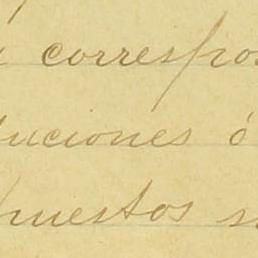 correspo
luciones ó
puestos s